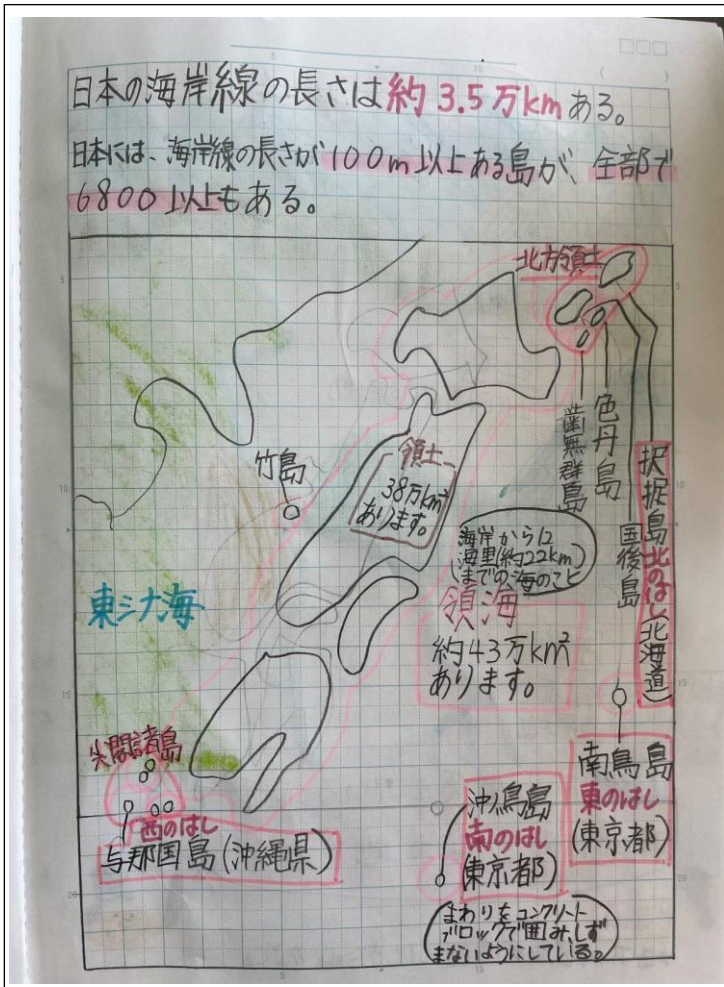 日本の海岸線の長さは約3.5万kmある。
日本には、海岸線の長さが100m以上ある島が、全部で
6800以上もある。
北方領土
歯無群島
色丹島
国後島
択捉島北のはし(北海道)
竹島
領土
38万km²
あります。
海岸から12
海里(約22km)
までの海のこと
領海
約43万km²
あります。
東シナ海
尖閣諸島
西のはし
与那国島(沖縄県)
沖ノ鳥島
南のはし
(東京都)
南鳥島
東のはし
(東京都)
まわりをコンクリート
ブロックで囲み、しず
まないようにしている。